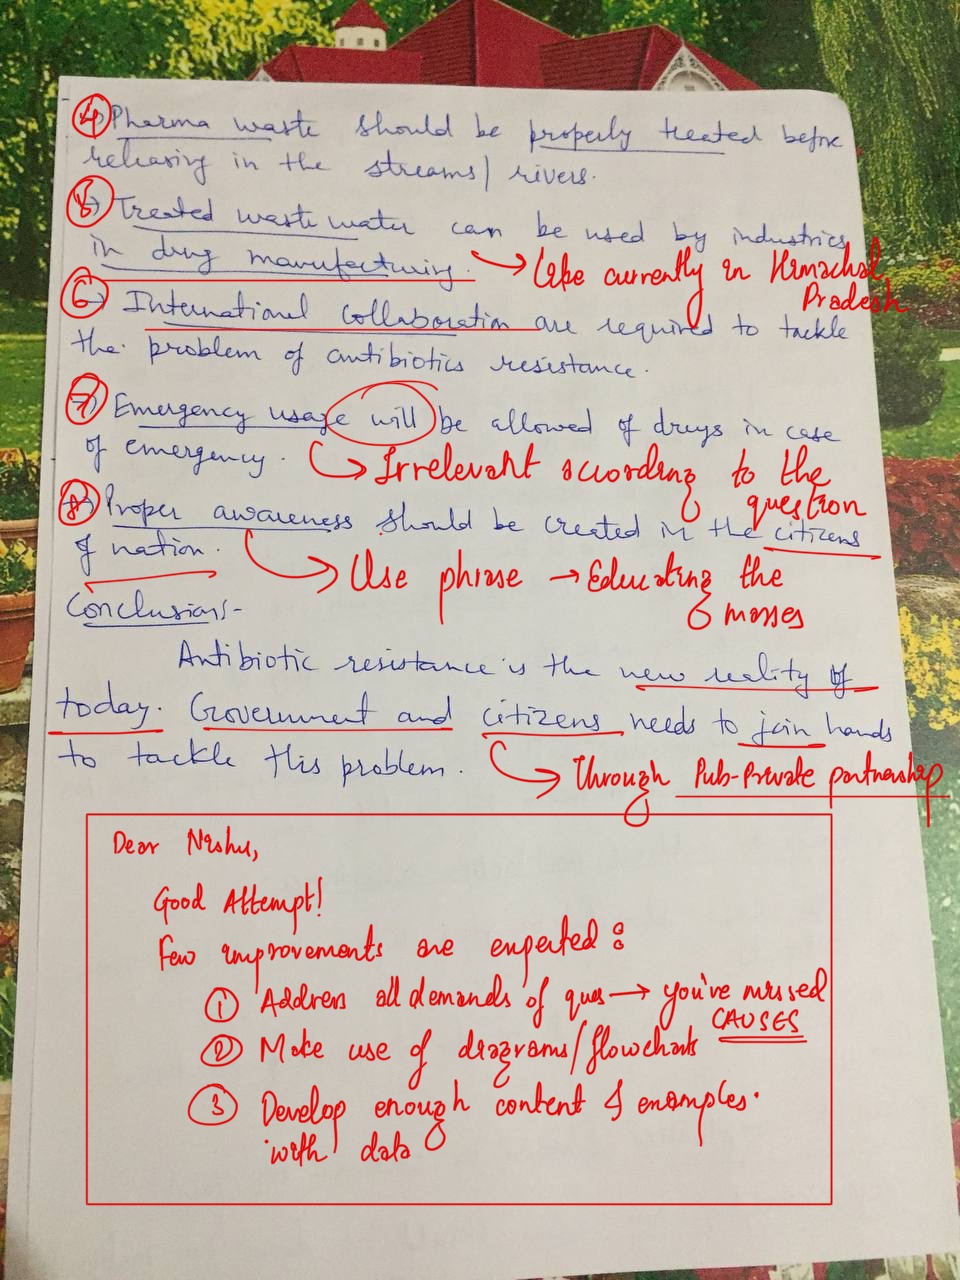 4) Pharma waste should be properly treated before
releasing in the streams/ rivers.
5) Treated waste water can be used by industries
in drug manufacturing. → Like currently in Himachal
Pradesh
6) International collaboration are required to tackle
the problem of antibiotics resistance.
7) Emergency usage will be allowed of drugs in case
of emergency. → Irrelevant according to the
question
8) Proper awareness should be created in the citizens
of nation. → Use phrase → Educating the
masses
Conclusion:-
Antibiotic resistance is the new reality of
today. Government and citizens needs to join hands
to tackle this problem. → Through Pub-Private partnership
Dear Nishu,
Good Attempt!
Few improvements are expected :
① Address all demands of ques → you've missed
CAUSES
② Make use of diagrams/flowcharts
③ Develop enough content & examples.
with data